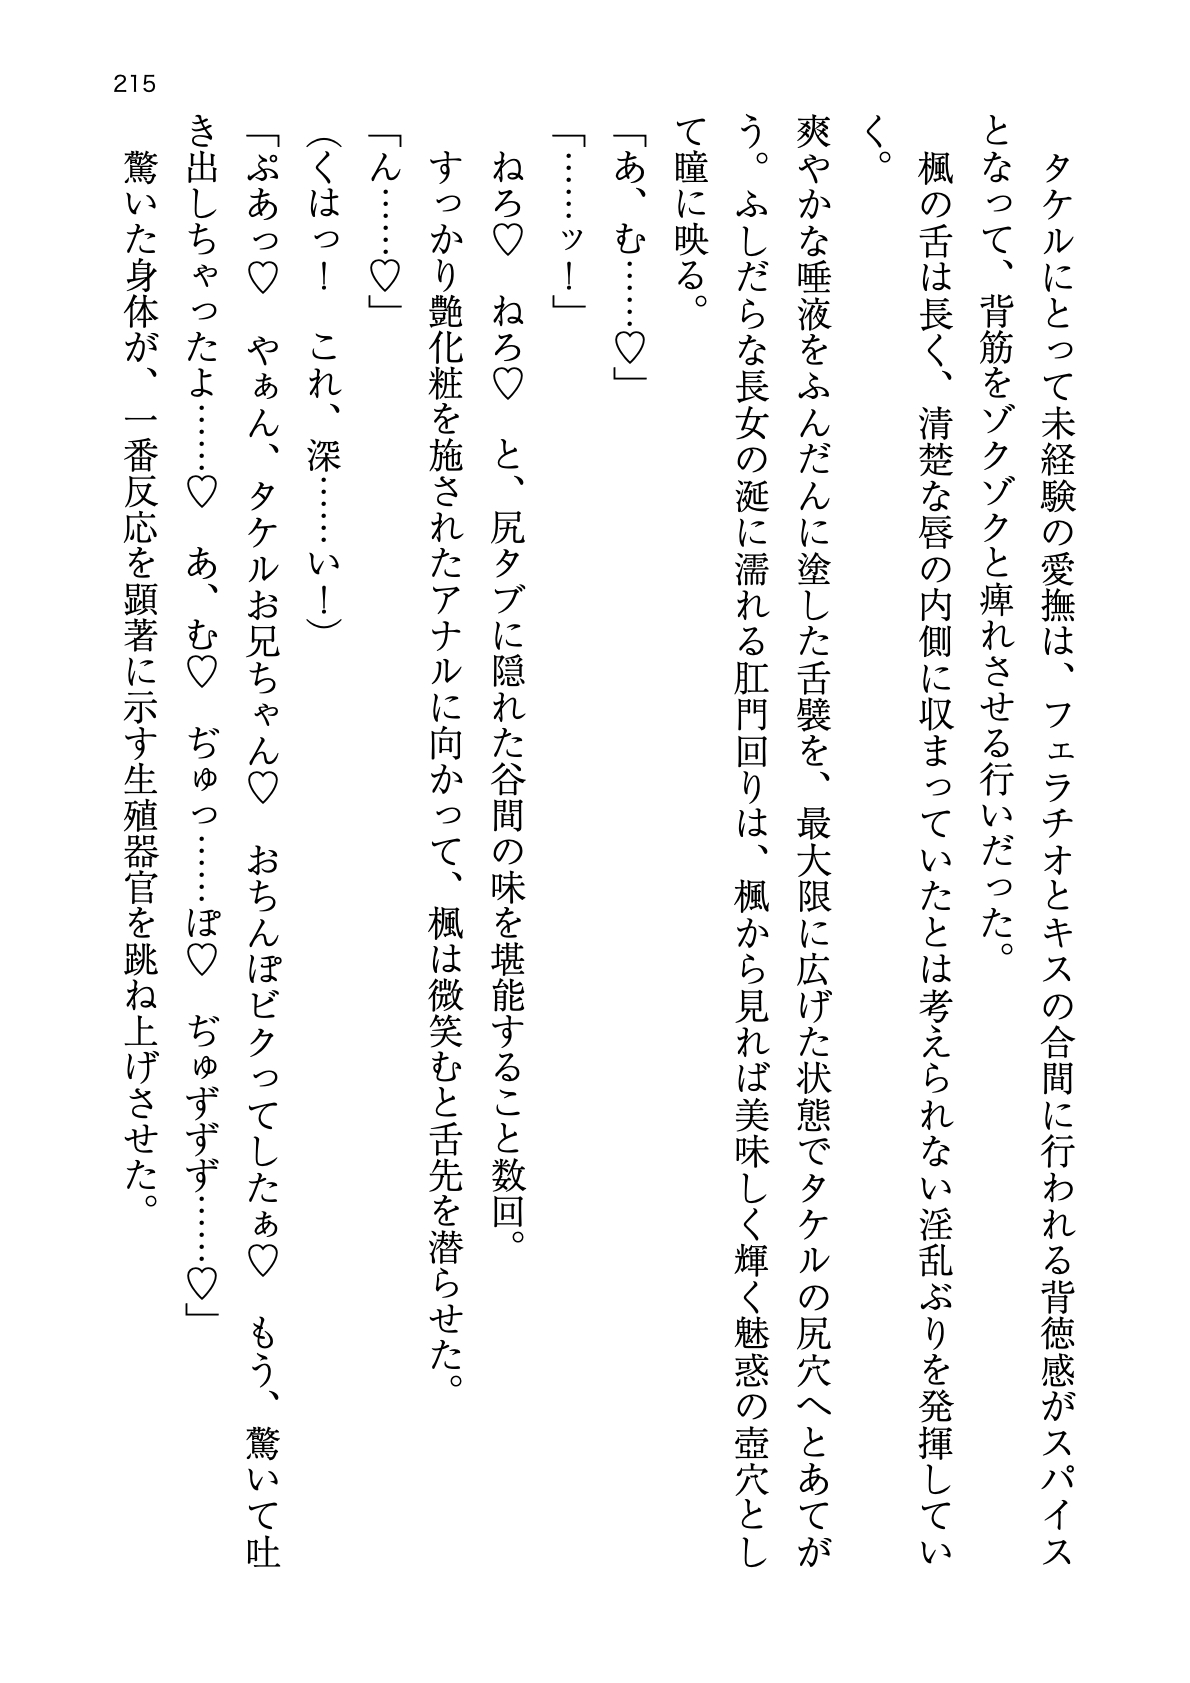 215
タケルにとって未経験の愛撫は、フェラチオとキスの合間に行われる背徳感がスパイス
となって、背筋をゾクゾクと痺れさせる行いだった。
楓の舌は長く、清楚な唇の内側に収まっていたとは考えられない淫乱ぶりを発揮してい
く。
爽やかな唾液をふんだんに塗した舌襞を、最大限に広げた状態でタケルの尻穴へとあてが
う。ふしだらな長女の涎に濡れる肛門回りは、楓から見れば美味しく輝く魅惑の壺穴とし
て瞳に映る。
「あ、む……♡」
「……ッ！」
ねろ♡　ねろ♡　と、尻タブに隠れた谷間の味を堪能すること数回。
すっかり艶化粧を施されたアナルに向かって、楓は微笑むと舌先を潜らせた。
「ん……♡」
（くはっ！　これ、深……い！）
「ぷあっ♡　やぁん、タケルお兄ちゃん♡　おちんぽビクってしたぁ♡　もう、驚いて吐
き出しちゃったよ……♡　あ、む♡　ぢゅっ……ぽ♡　ぢゅずずず……♡」
驚いた身体が、一番反応を顕著に示す生殖器官を跳ね上げさせた。